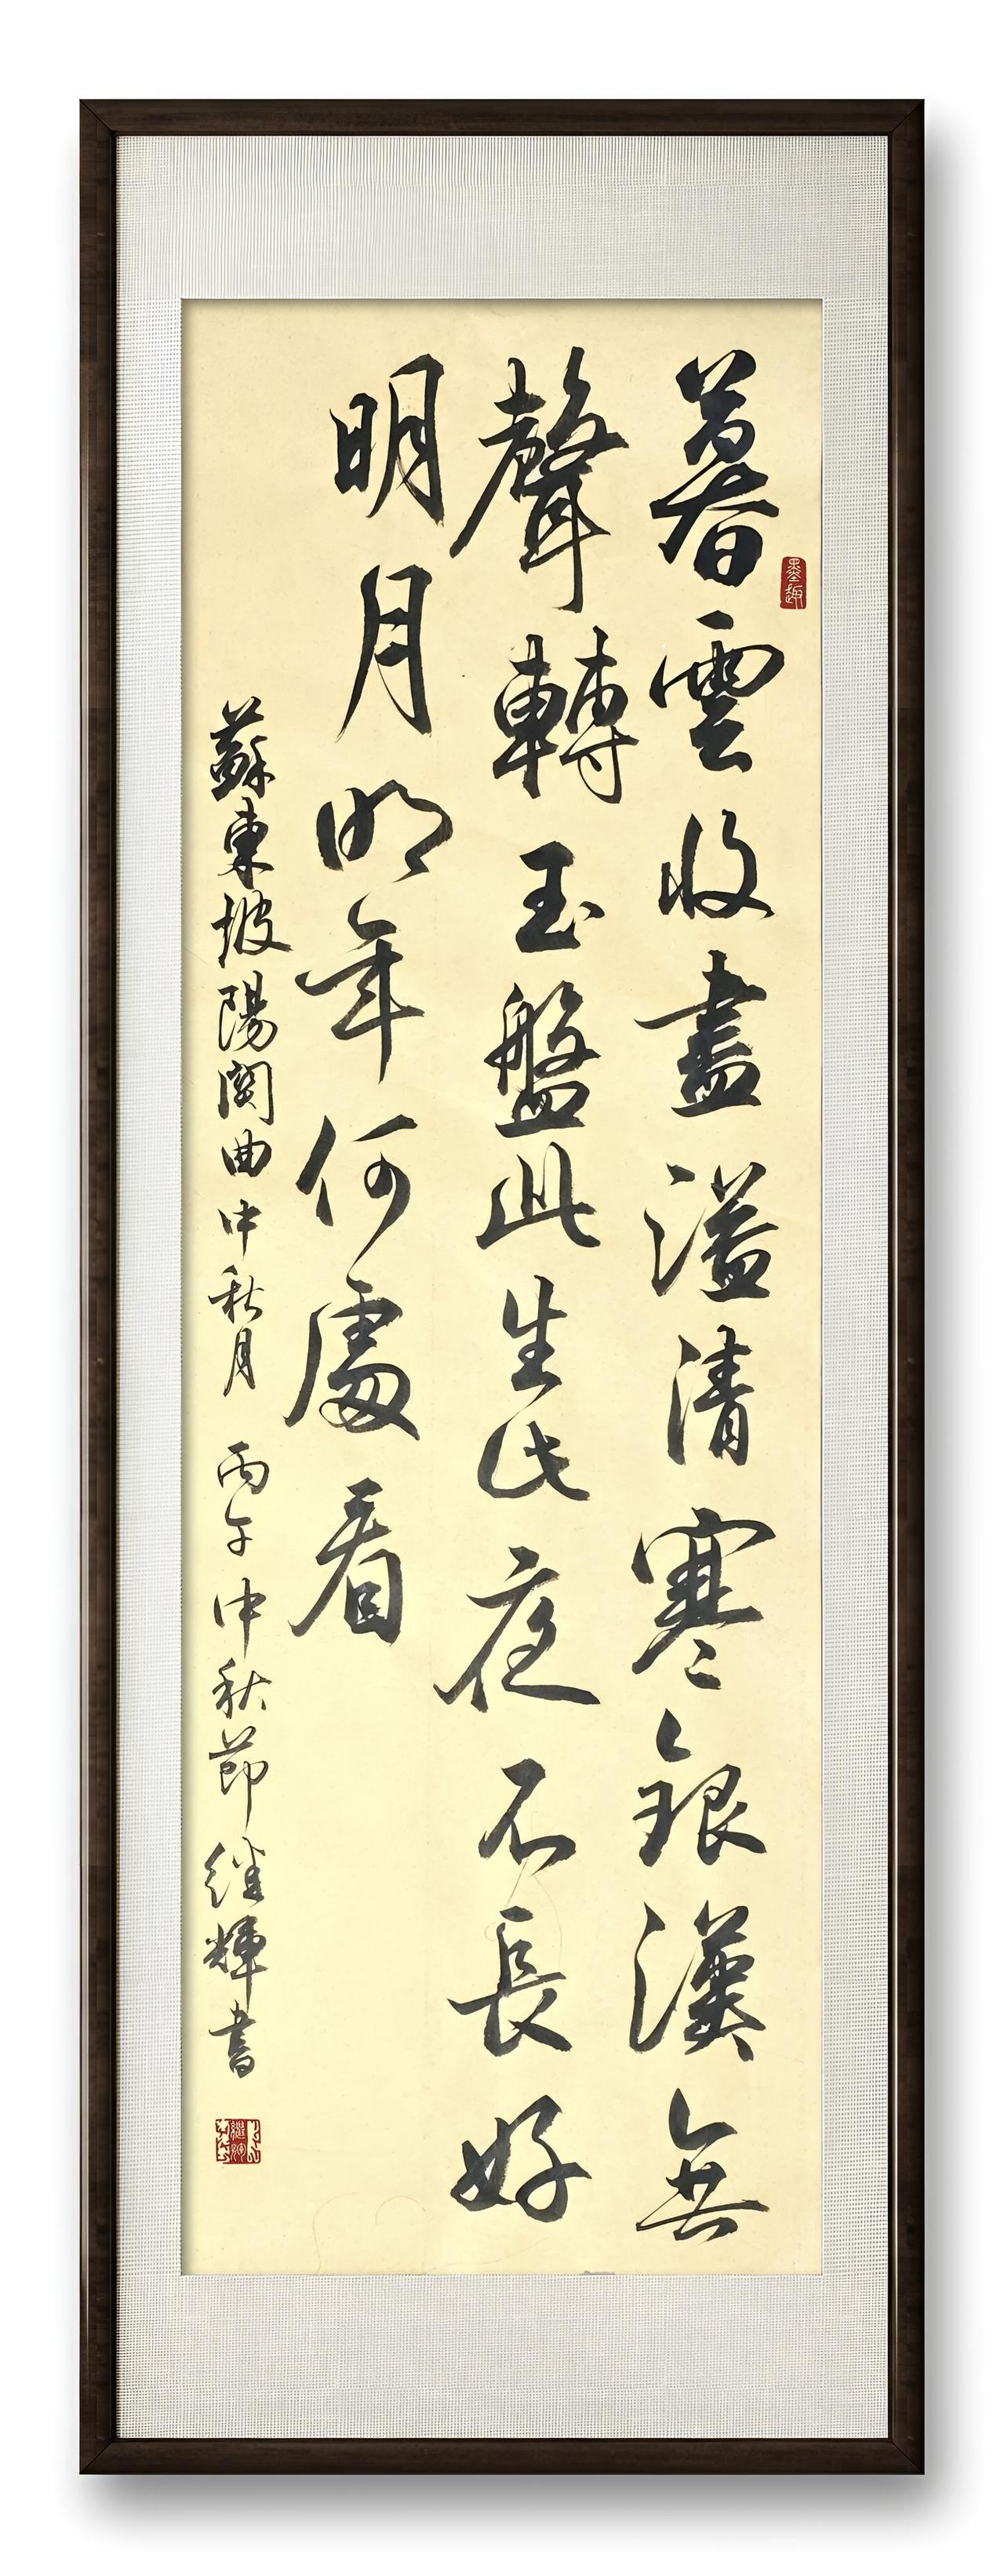 暮雲收盡溢清寒銀漢無
聲轉玉盤此生此夜不長好
明月明年何處看
蘇東坡陽関曲中秋月 丙午中秋節繼輝書
墨趣